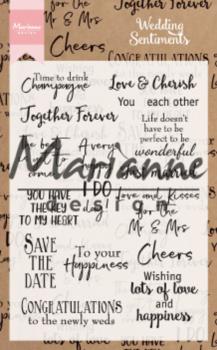 Marianne
DESIGN
Wedding
Sentiments
Mr & Mrs
Together Forever
Cheers
Time to drink
Champagne
Love & Cherish
You each other
Together Forever
Life doesn't
have to be
perfect to be
wonderful
The best
A very
Marianne
design
I DO
YOU HAVE
THE KEY
TO MY HEART
day
Love and Kisses
for the
Mr & Mrs
SAVE
THE
DATE
To your
Happiness
Cheers
Wishing
lots of love
and
happiness
CONGRATULATIONS
to the newly weds